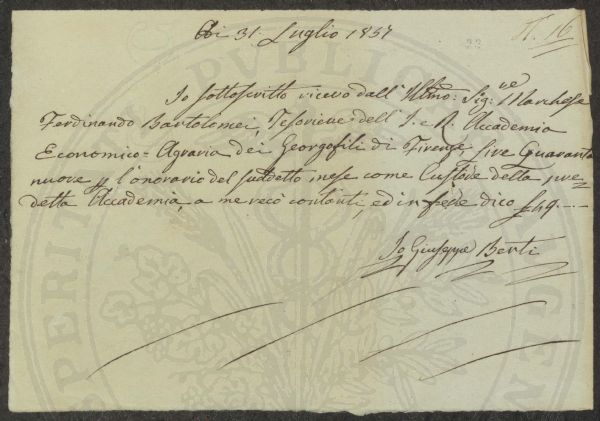 Adi 31. Luglio 1837
N. 16
Io sottoscritto ricevo dall' Illmo: Sig:re Marchese
Ferdinando Bartolomei, Tesoriere dell' I. e R. Accademia
Economico=Agraria dei Georgofili di Firenze, Lire Quaranta
nuove p l'onorario del suddetto mese come Custode della pre=
detta Accademia, a me recò contanti, ed in fede dico £ 49. ---
Io Giuseppe Berti